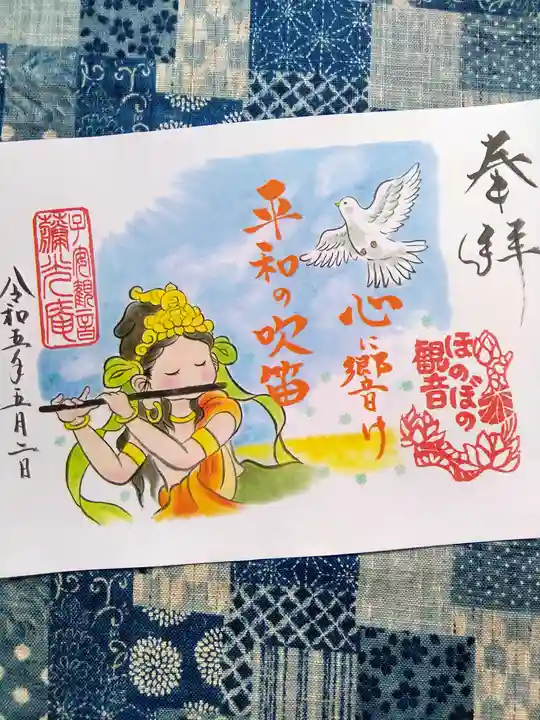 奉拝
ほのぼの
観音
心に響け
平和の吹笛
子安観音
令和五年五月二日